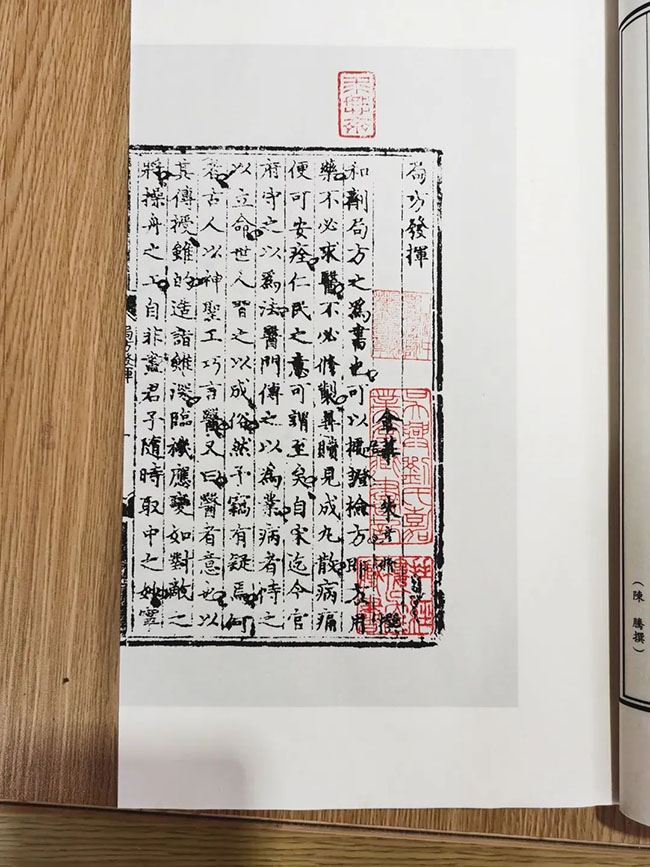 局方發揮
金華 朱彥脩 撰
和劑局方之爲書也可以據證檢方即方用
藥不必求醫不必修製尋贖見成丸散病痛
便可安痊仁民之意可謂至矣自宋迄今官
府守之以爲法醫門傳之以爲業病者恃之
以立命世人習之以成俗然予竊有疑焉何
者古人以神聖工巧言醫又曰醫者意也以
其傳授雖的造詣雖深臨機應變如對敵之
將操舟之工自非盡君子隨時取中之妙寧
局方發揮
吳興劉氏嘉
業堂藏書記
(陳騰撰)